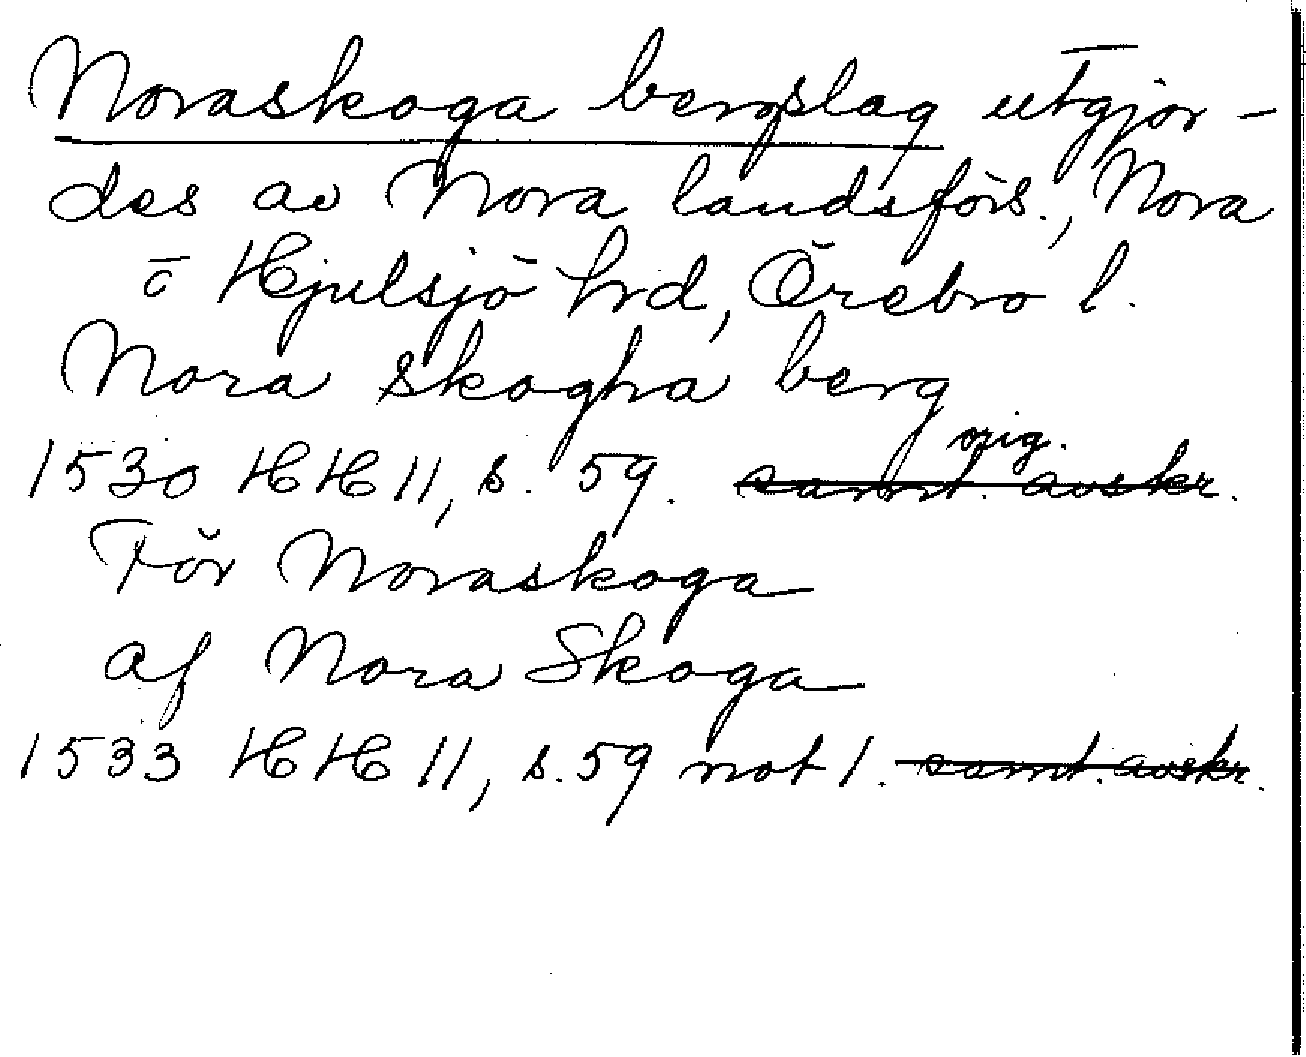 Noraskoga bergslag utgjor-
des av Nora landsförs., Nora
o Hjulsjö hrd, Örebro l.
Nora skogha berg
orig.
1530 HH 11, s. 59. ~~samt. avskr.~~
För Noraskoga
af Nora Skoga
1533 HH 11, s. 59 not 1. ~~samt. avskr.~~